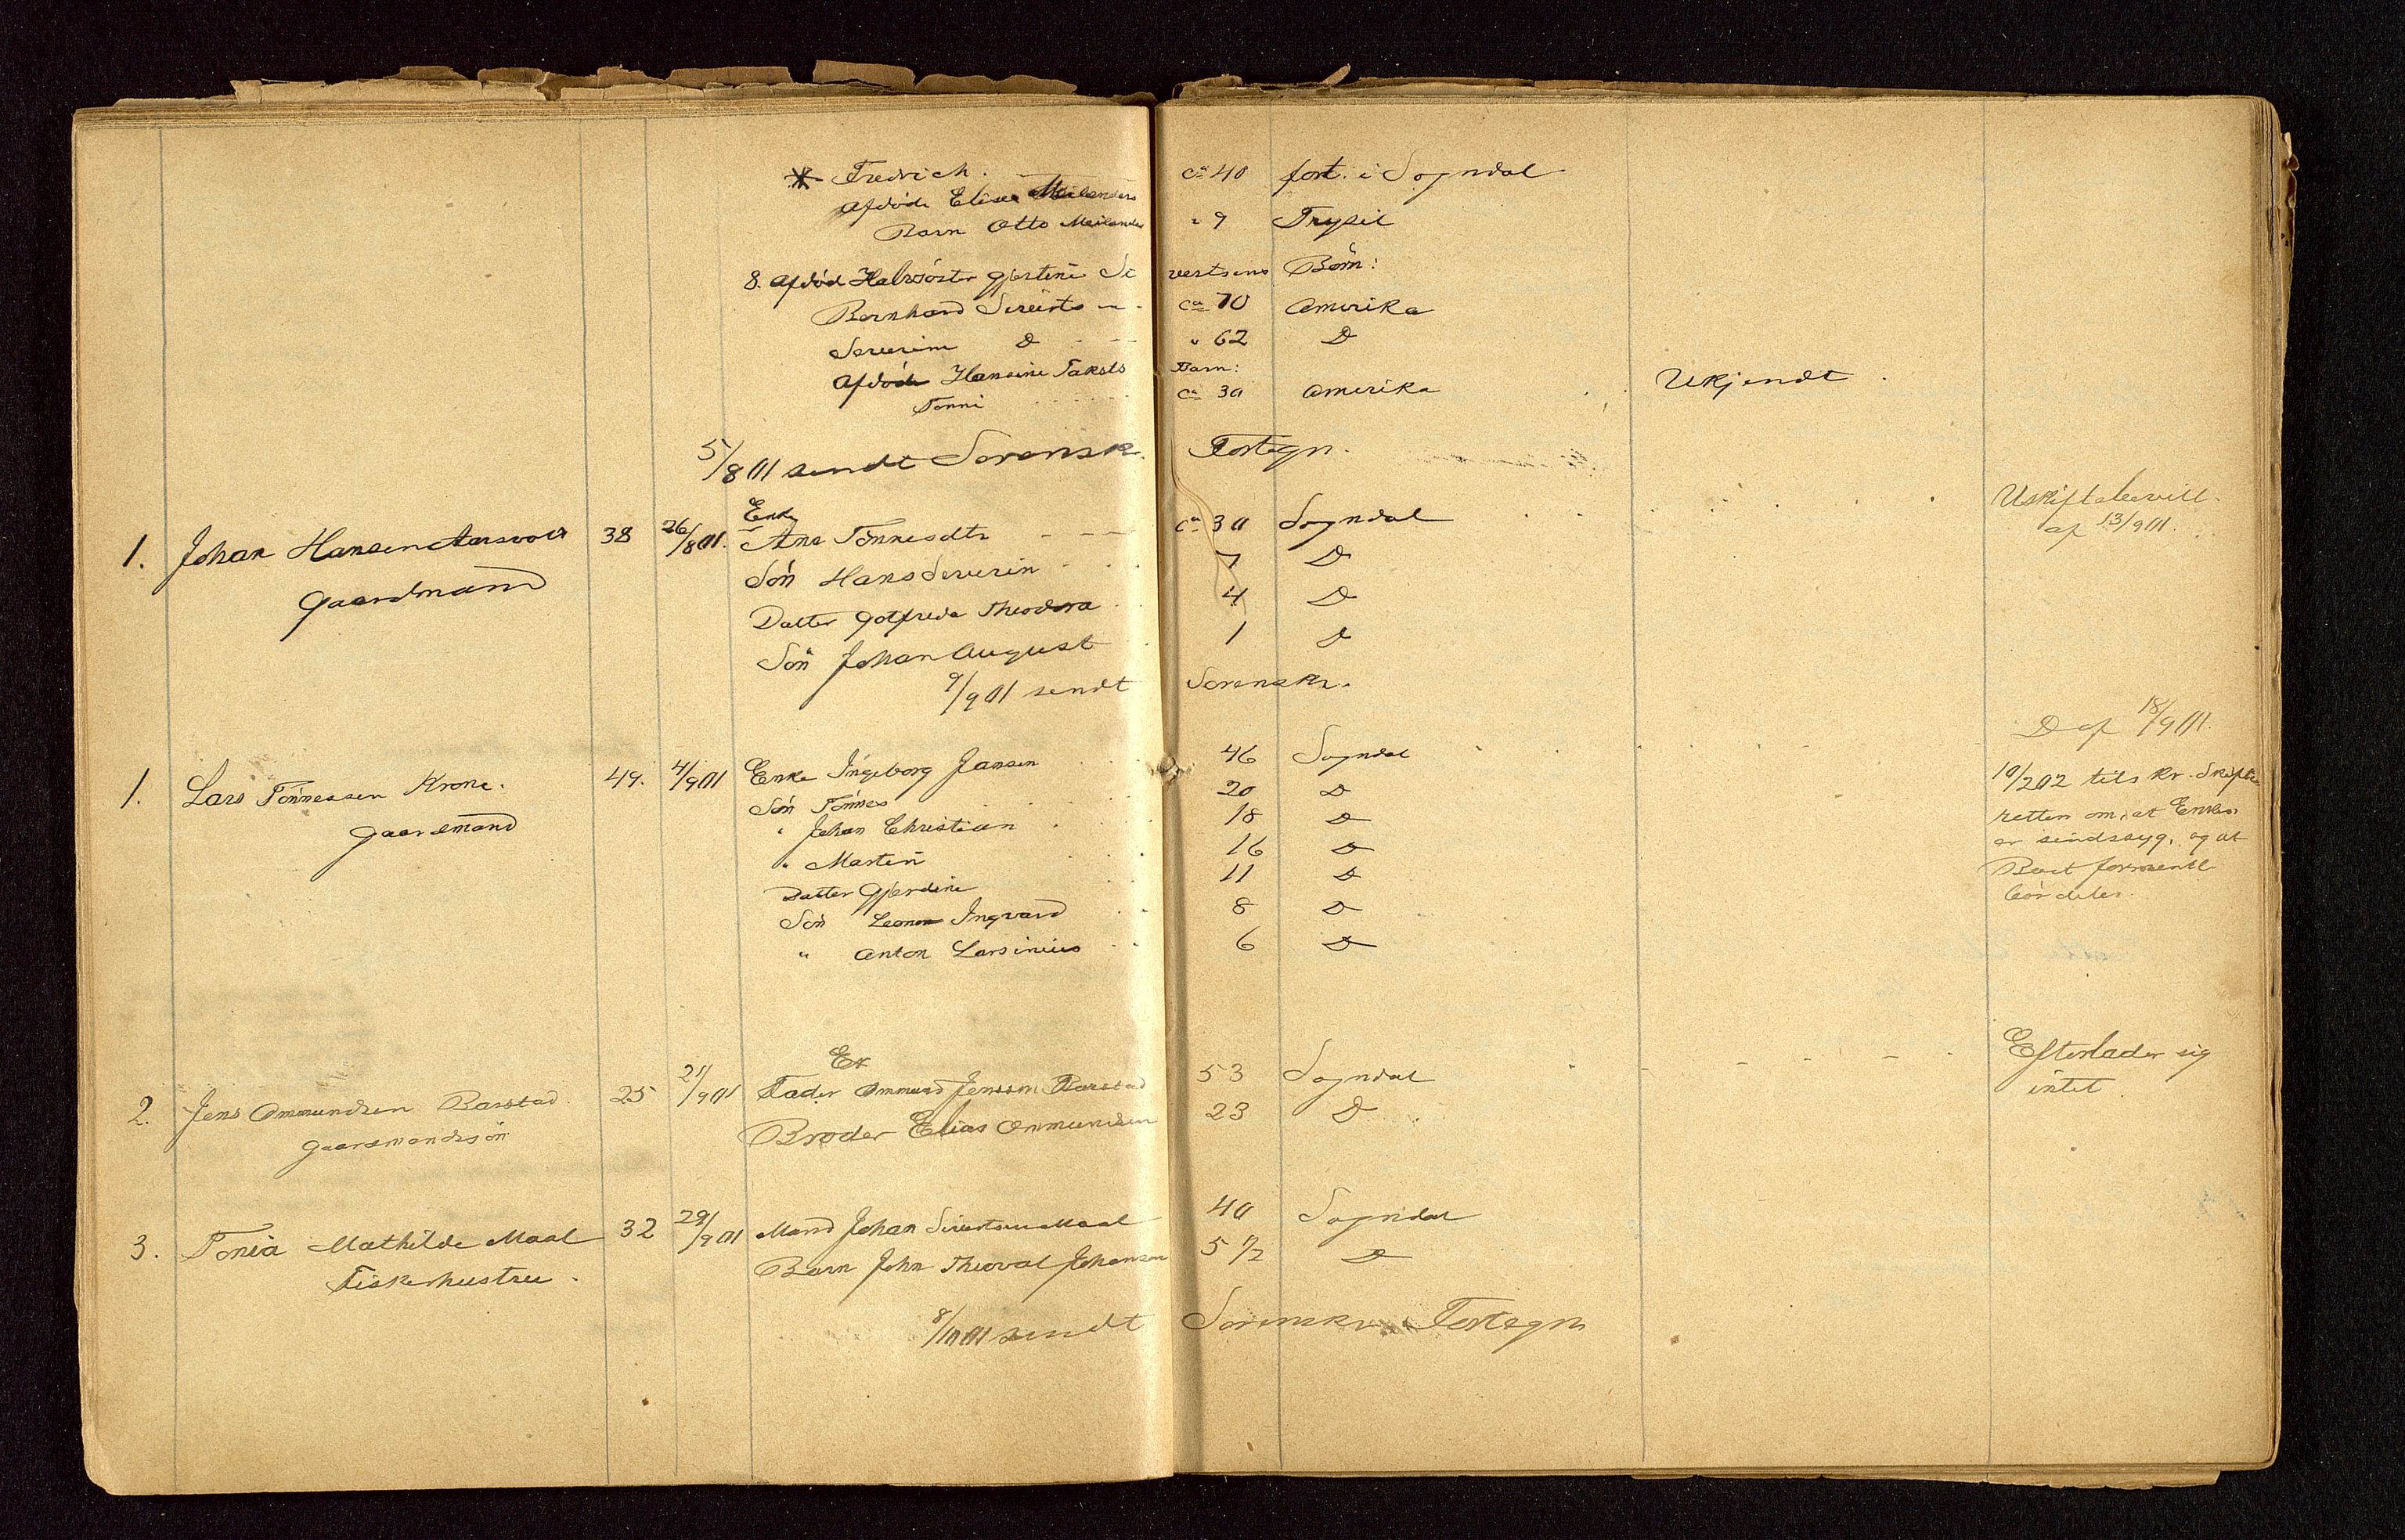 * Fredrich. ca 40 fort. i Sogndal
Afdöde Elisa Meilanders
Barn Otto Meilander " 9 Trysil
8. Afdöd Halvsöster Gjertine Sivertsens Börn:
Bernhard Siverts ca 70 Amerika
Severine D " 62 D
Afdöde Hansine Taksts Barn:
Tonni ca 30 Amerika Ukjendt.
5/8 01 sendt Sorensk. Fortegn.
1. Johan Hansen Aarsvold 38 26/8 01. Enke Ane Tönnesdtr ca 30 Sogndal Uskiftebevill.
Gaardmand Sön Hans Severin 7 D af 13/9 01.
Datter Gotfreda Theodora 4 D
Sön Johan August 1 D
9/9 01 sendt Sorenskr.
D af 18/9 01.
1. Lars Tönnessen Krone. 49. 4/9 01 Enke Ingeborg Jansen 46 Sogndal
Gaardmand Sön Tönnes 20 D
" Johan Christian 18 D
" Martin 16 D
Datter Gjerdine 11 D
Sön Leonor Ingvard 8 D
" Anton Larsinius 6 D
10/2 02 tils kr. Skifte
retten om, at Enken
er sindssyg, og at
Boet formentl
bör deles.
2. Jens Ommundsen Barstad. 25 21/9 01 Fader Ommund Jenssen Barstad 53 Sogndal Efterlader sig
Gaardmandssön Broder Elias Ommundsen 23 D intet.
3. Tonia Mathilde Maal 32 29/9 01 Mand Johan Sivertsen Maal 40 Sogndal
Fiskerhustru. Barn John Theoval Johansen 5 1/2 D
8/10 01 sendt Sorenskr. Fortegn